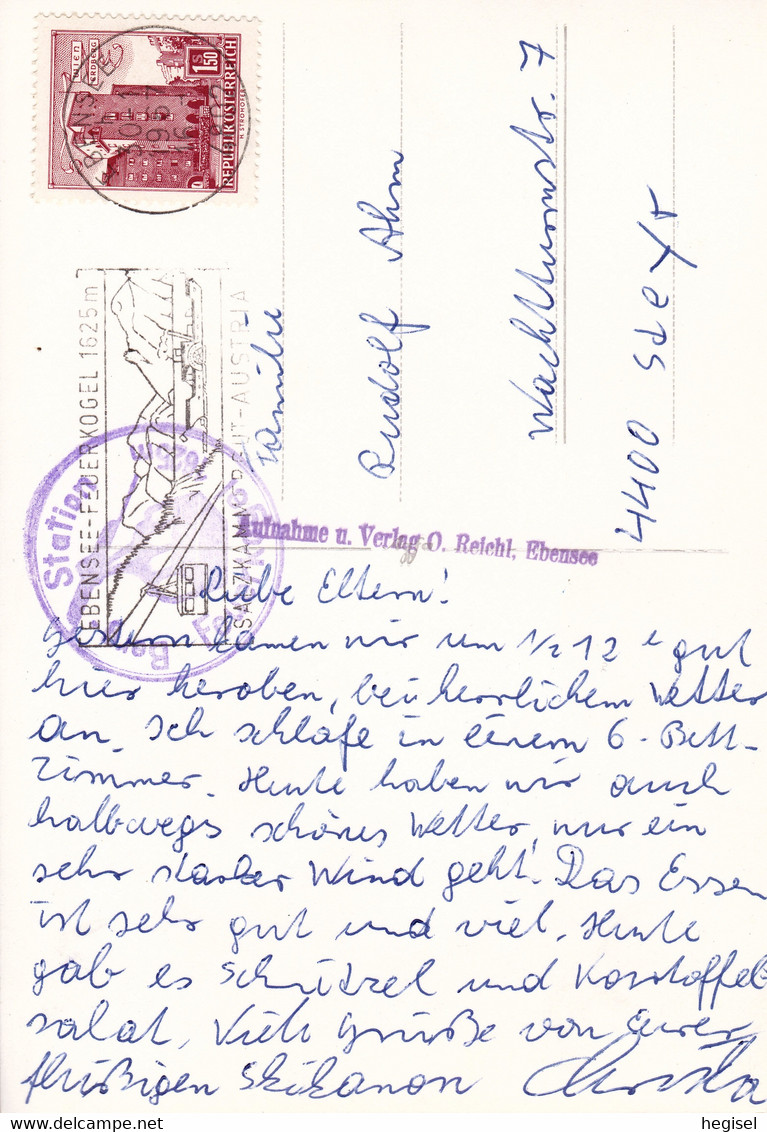 WIEN
ERDBERG
S 1.50
REPUBLIK ÖSTERREICH
H. STROHOFER
EBENSEE
1967
EBENSEE-FEUERKOGEL 1625m
SALZKAMMERGUT-AUSTRIA
Station
Berg
Familie
Rudolf Ahm
Wachtturmstr. 7
4400 Steyr
Aufnahme u. Verlag O. Reichl, Ebensee
Liebe Eltern!
Gestern kamen wir um 1/2 12 h gut
hier heroben, bei herrlichem Wetter
an. Ich schlafe in einem 6-Bett-
Zimmer. Heute haben wir auch
halbwegs schönes Wetter, nur ein
sehr starker Wind geht. Das Essen
ist sehr gut und viel. Heute
gab es Schnitzel und Kartoffel
salat. Viele Grüße von eurer
fleißigen Skikanon Christa
hegisel